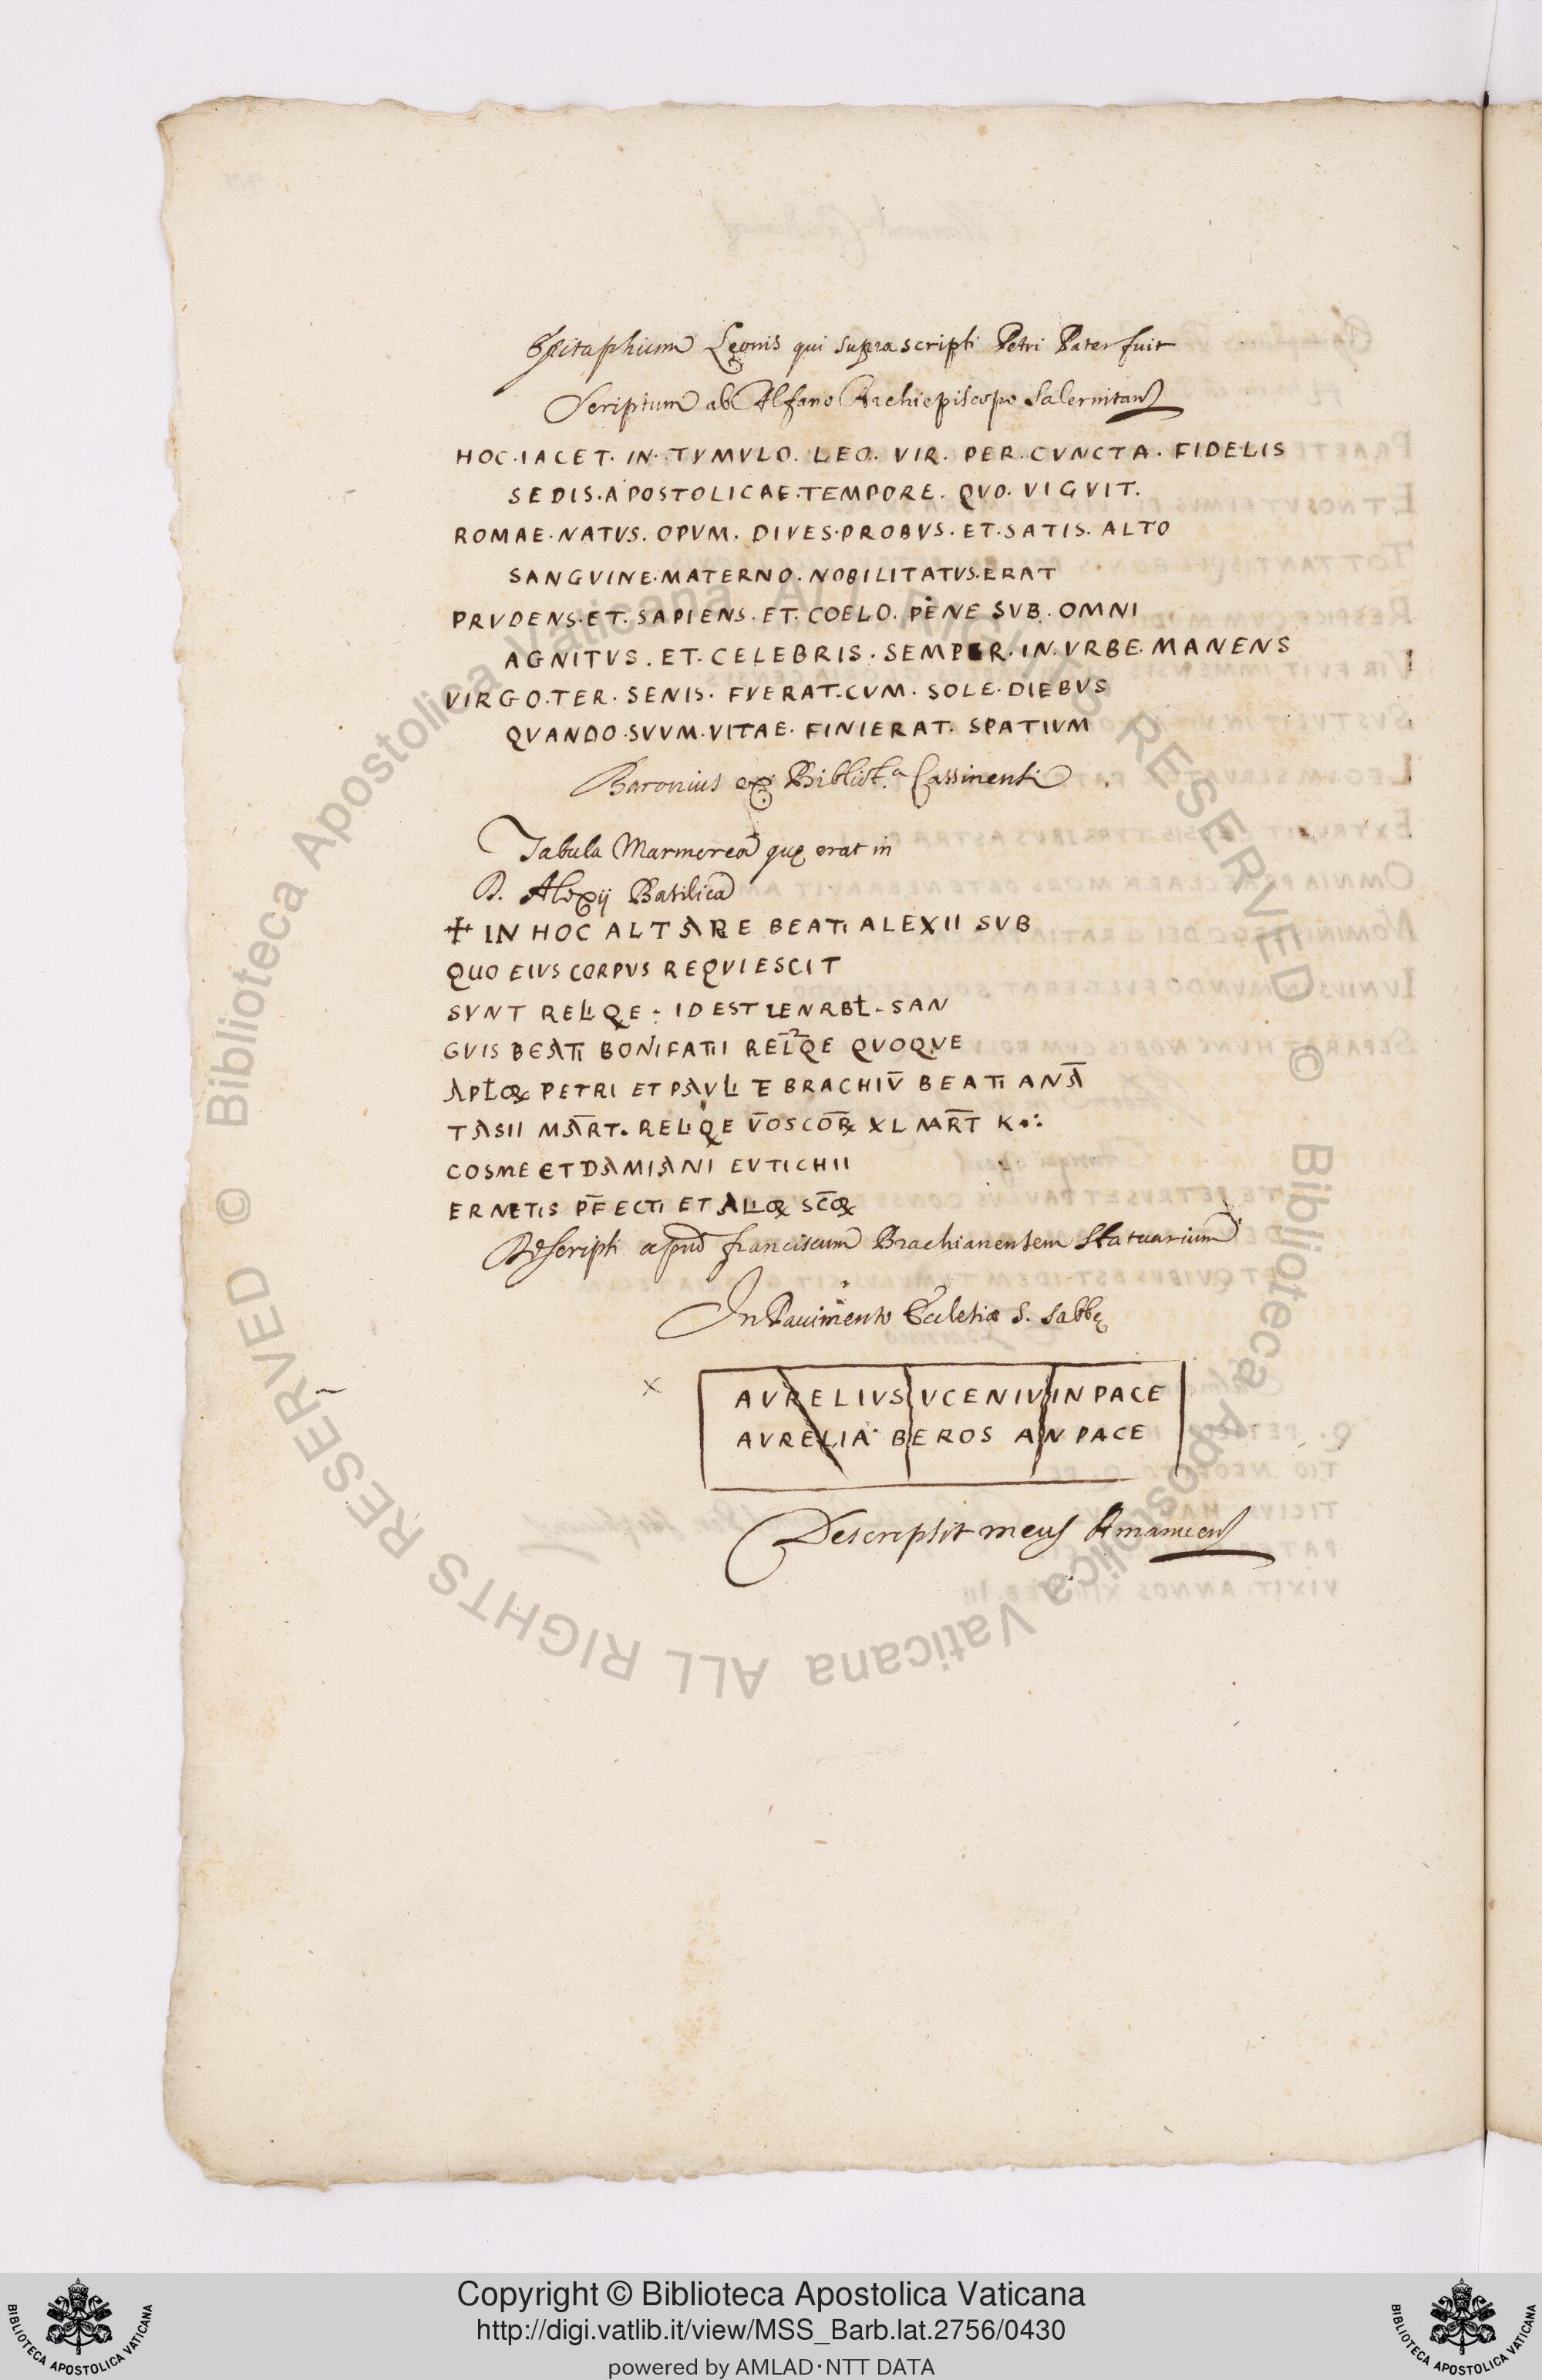 Epitaphium Leonis qui suprascripti Petri Pater fuit
Scriptum ab Alfano Archiepiscopo Salernitano
HOC·IACET·IN·TVMVLO·LEO·VIR·PER·CVNCTA·FIDELIS
SEDIS·APOSTOLICAE·TEMPORE·QVO·VIGVIT·
ROMAE·NATVS·OPVM·DIVES·PROBVS·ET·SATIS·ALTO
SANGVINE·MATERNO·NOBILITATVS·ERAT
PRVDENS·ET·SAPIENS·ET·COELO·PENE SVB·OMNI
AGNITVS·ET·CELEBRIS·SEMPER·IN·VRBE·MANENS
VIRGO·TER·SENIS·FVERAT·CVM·SOLE·DIEBVS
QVANDO·SVVM·VITAE·FINIERAT·SPATIVM
Baronius ex Bibliot.ª Cassinensi
Tabula Marmorea quę erat in
D. Alexij Basilica
✝ IN HOC ALTARE BEATI ALEXII SVB
QUO EIVS CORPVS REQVIESCIT
SVNT RELIQE · ID EST
SAN
GVIS BEATI BONIFATII RELQE QVOQVE
PETRI ET PAVLI E BRACHIV̄ BEATI ANĀ
TASII MĀRT· RELIQE
XL MĀRT K
COSME ET DAMIANI EVTICHII
ERNETIS PF̄ECTI ET
Descripti apud Franciscum Brachianensem Statuarium
In Pavimento Ecclesiæ S. Sabbę
AVRELIVS VCENIV IN PACE
AVRELIA BEROS AN PACE
Descripsit meus Amanuens
Biblioteca Apostolica Vaticana ALL RIGHTS RESERVED ©
Biblioteca Apostolica Vaticana ALL RIGHTS RESERVED ©
Copyright © Biblioteca Apostolica Vaticana
http://digi.vatlib.it/view/MSS_Barb.lat.2756/0430
powered by AMLAD·NTT DATA
BIBLIOTECA APOSTOLICA VATICANA
BIBLIOTECA APOSTOLICA VATICANA